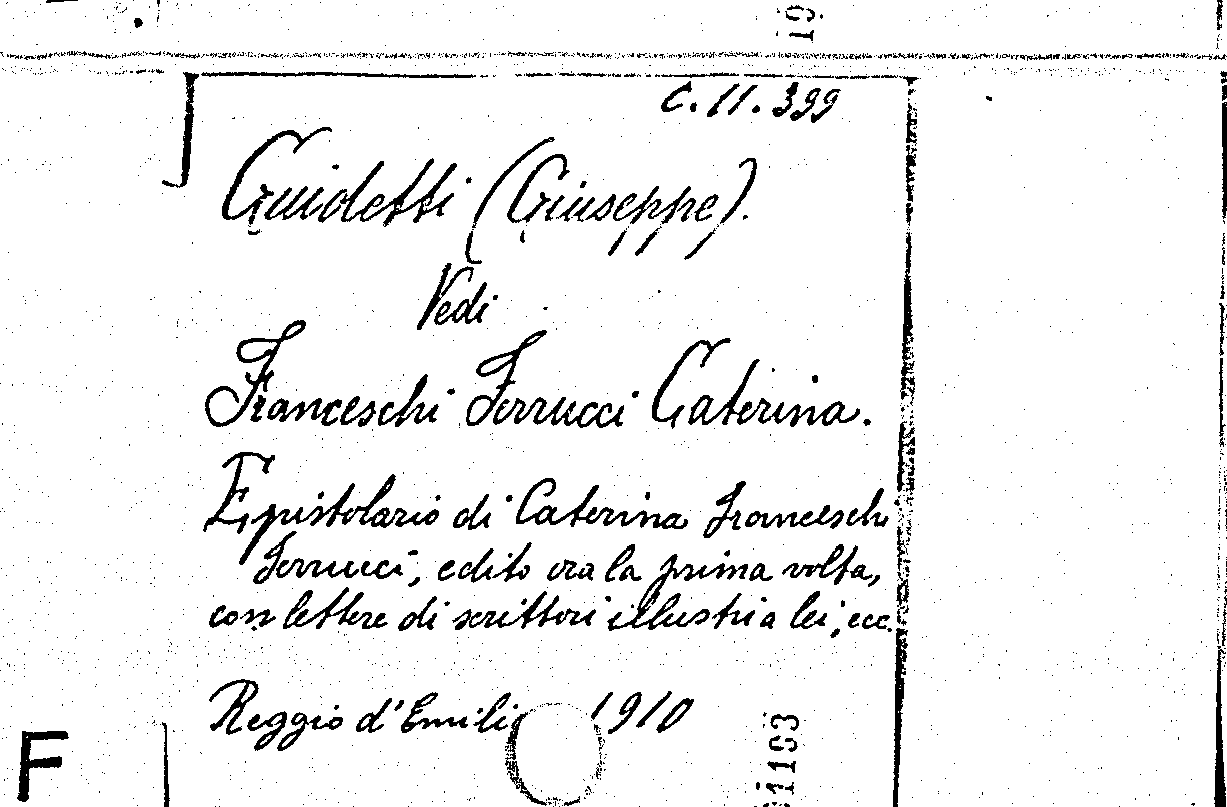 19
C. 11. 399
Guidetti (Giuseppe).
Vedi
Franceschi Ferrucci Caterina.
Epistolario di Caterina Franceschi
Ferrucci, edito ora la prima volta,
con lettere di scrittori illustri a lei, ecc.
Reggio d'Emilia 1910
F